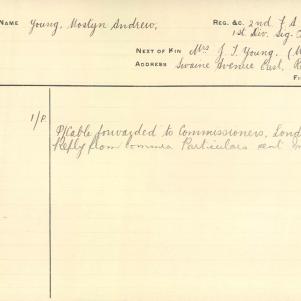 NAME Young, Mostyn Andrew, REG. &C. 2nd F A
1st Div. Sig.
NEXT OF KIN Mrs J. T. Young. (M
ADDRESS Swaine Avenue East, R
FI
1/P. P/Cable forwarded to Commissioners, Lond
Reply from Commrs Particulars sent